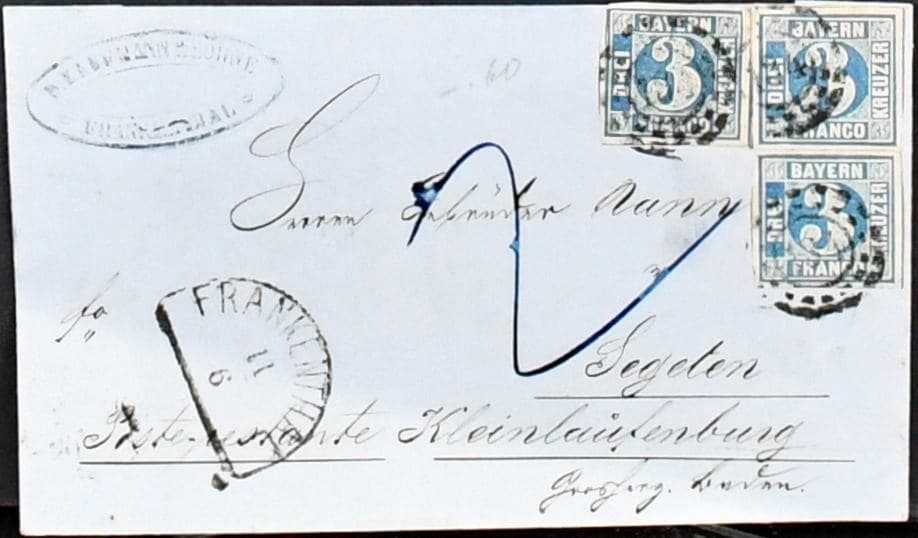 & SÖHNE
FRANKENTHAL
-.60
BAYERN
DREI 3 KREUZER
FRANCO
BAYERN
DREI 3 KREUZER
FRANCO
BAYERN
DREI 3 KREUZER
FRANCO
Herren Gebrüder Nann
fro
FRANKENTHAL
11
6
Segeten
Poste restante Kleinlaufenburg
Grosherg. Baden.